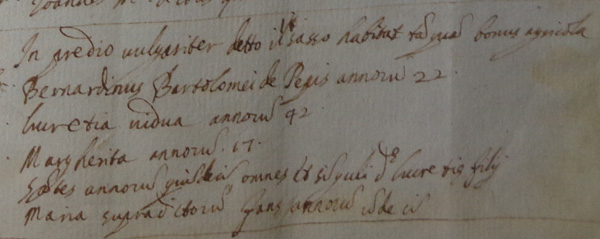 In predio vulgariter detto il sasso habitat tã quã bonus agricola
Bernardinus Bartolomei de Pegis annorũ 22.
lucretia vidua annorũ 42.
Margherita annorũ. 17.
annorũ omnes et siguli dᵉ lucretię filij
Maria supradictorũ annorũ